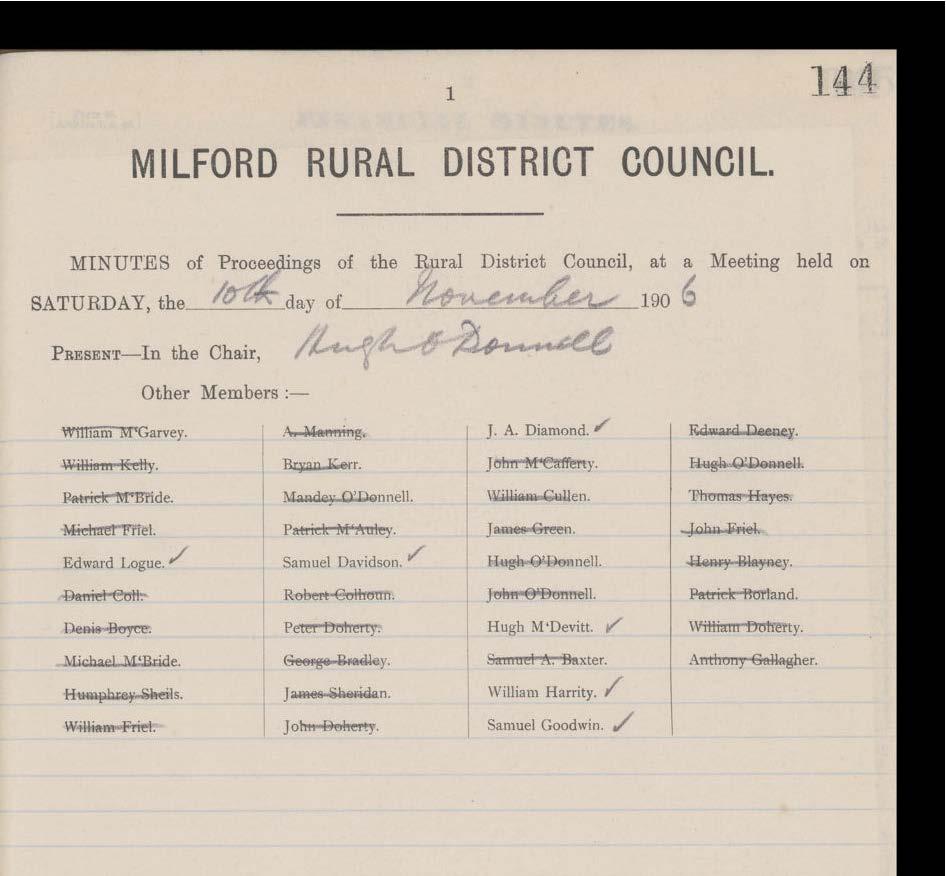 144
1
MILFORD RURAL DISTRICT COUNCIL.
MINUTES of Proceedings of the Rural District Council, at a Meeting held on
SATURDAY, the 10th day of November 1906
PRESENT—In the Chair, Hugh O'Donnell
Other Members :—
William M‘Garvey.
William Kelly.
Patrick M‘Bride.
Michael Friel.
Edward Logue. ✓
Daniel Coll.
Denis Boyce.
Michael M‘Bride.
Humphrey Sheils.
William Friel.
A. Manning.
Bryan Kerr.
Mandey O’Donnell.
Patrick M‘Auley.
Samuel Davidson. ✓
Robert Colhoun.
Peter Doherty.
George Bradley.
James Sheridan.
John Doherty.
J. A. Diamond. ✓
John M‘Cafferty.
William Cullen.
James Green.
Hugh O’Donnell.
John O’Donnell.
Hugh M‘Devitt. ✓
Samuel A. Baxter.
William Harrity. ✓
Samuel Goodwin. ✓
Edward Deeney.
Hugh O’Donnell.
Thomas Hayes.
John Friel.
Henry Blayney.
Patrick Borland.
William Doherty.
Anthony Gallagher.